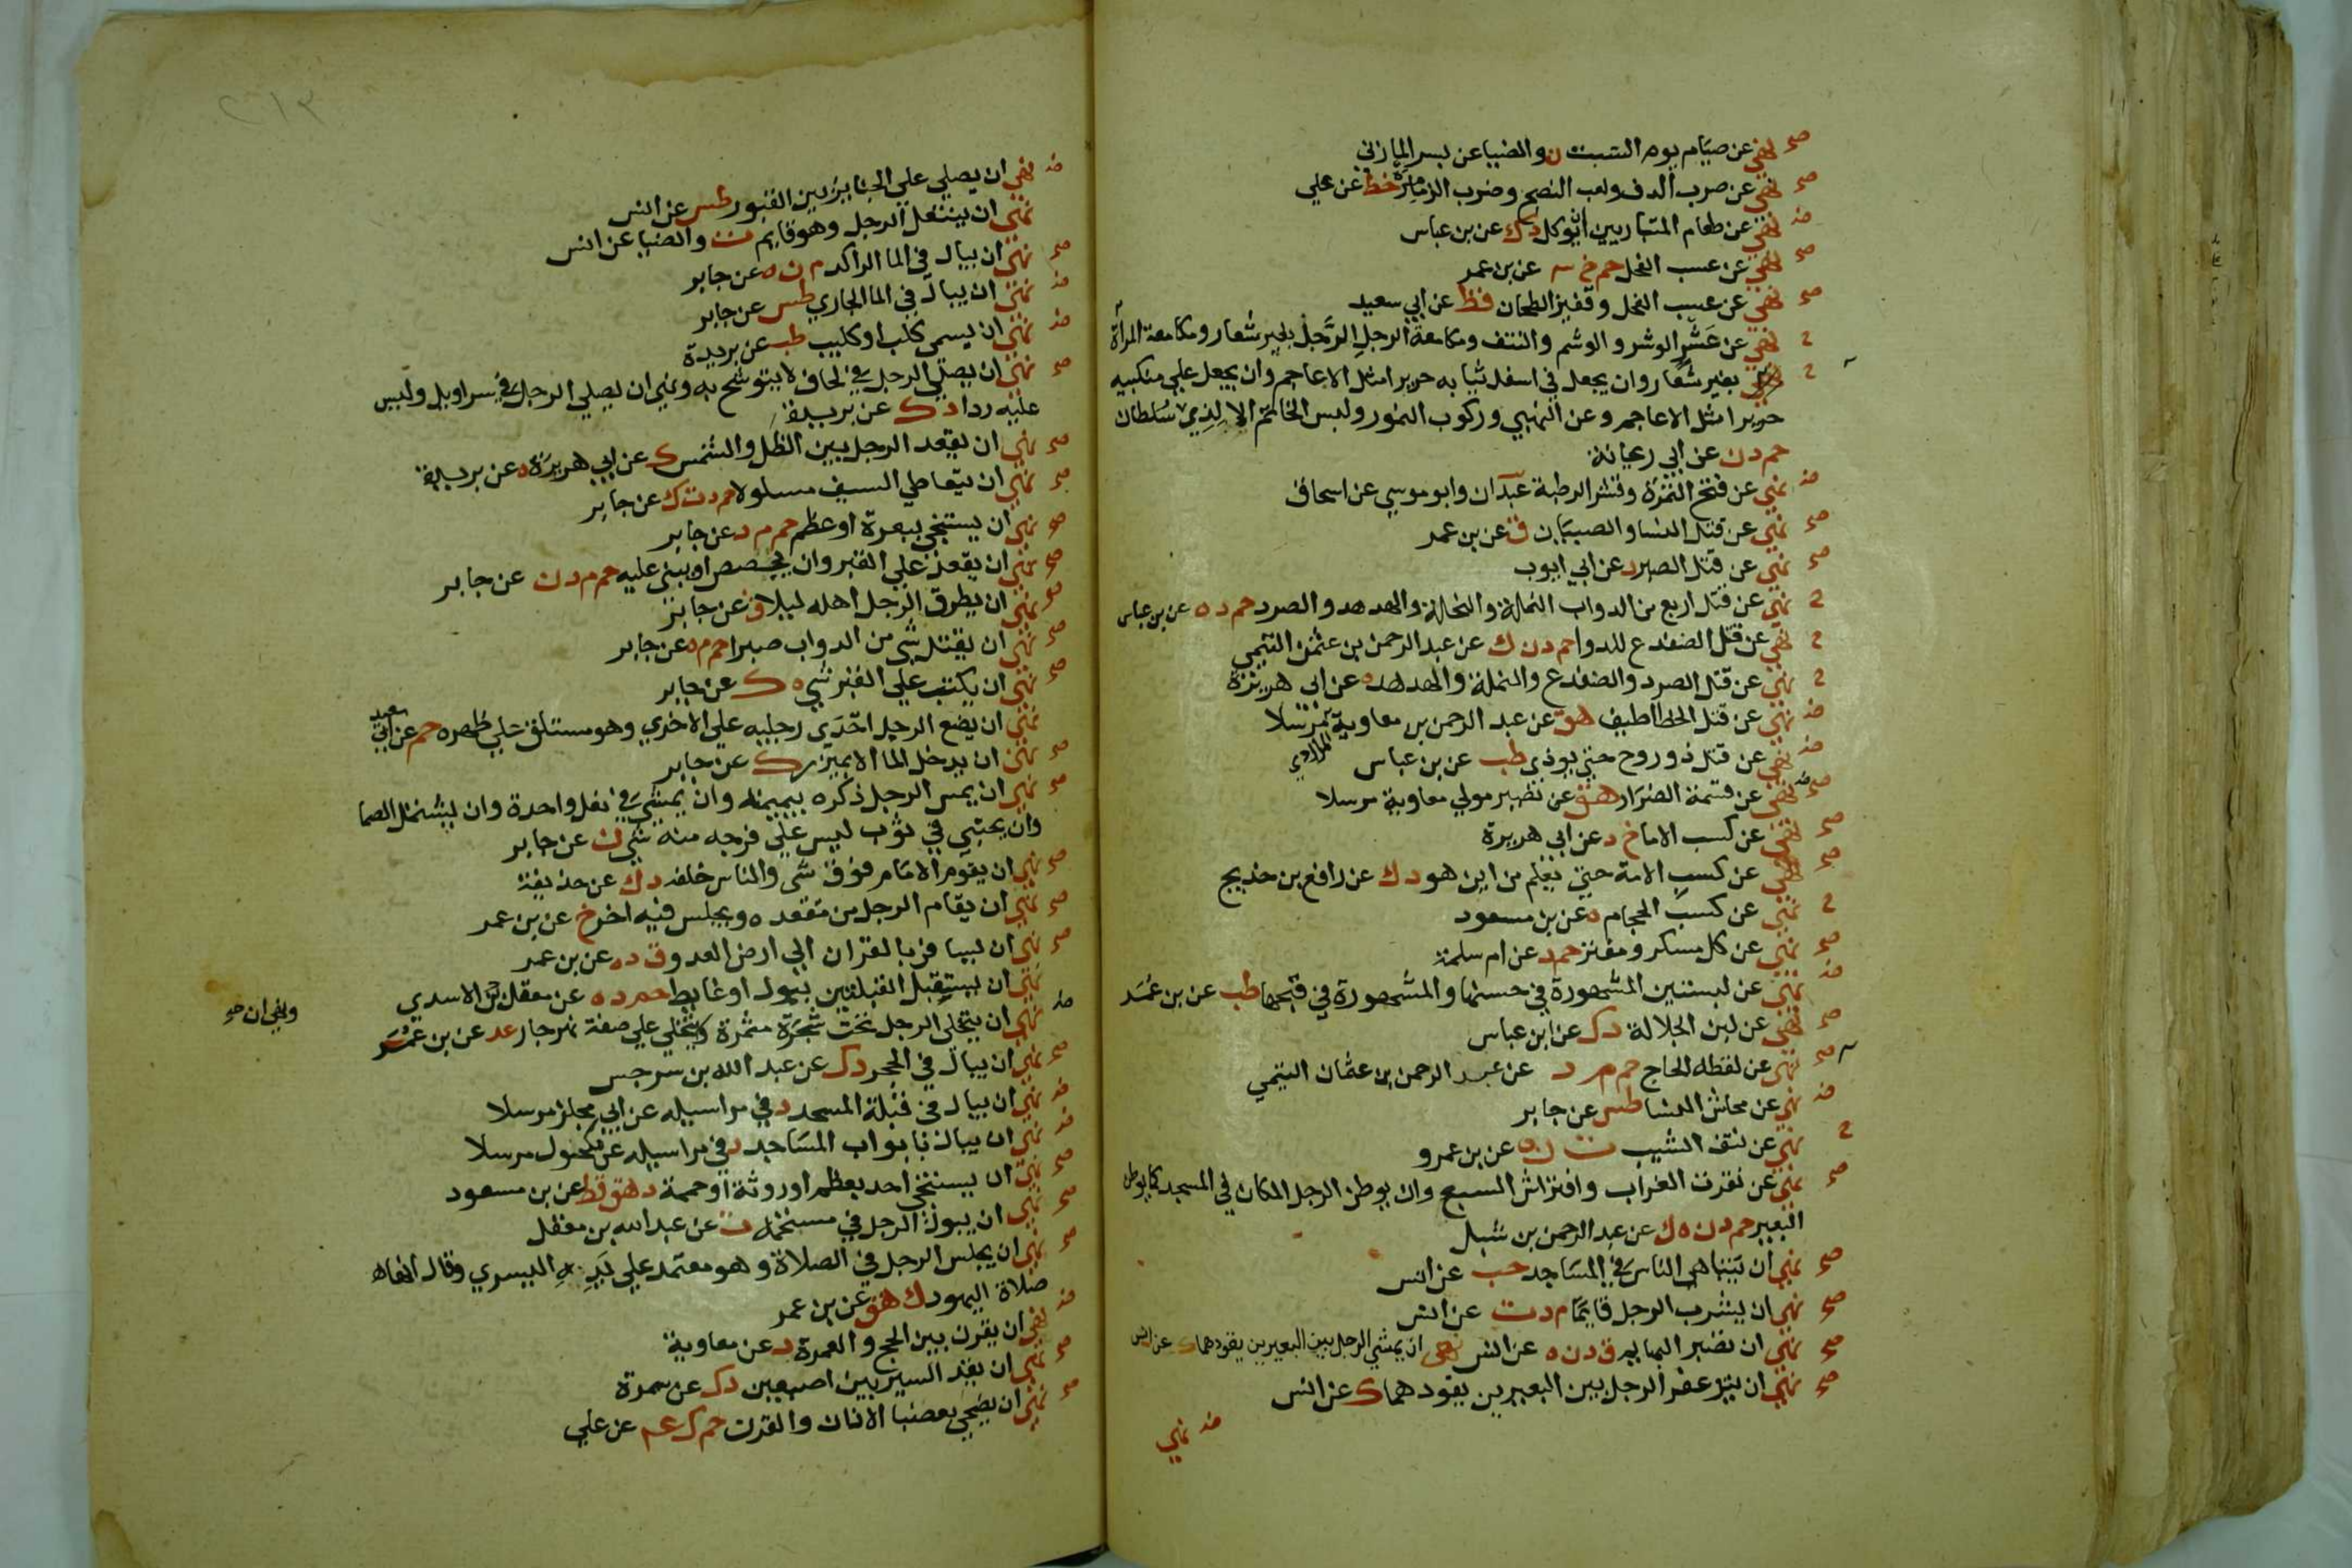 صح نهي عن صيام يوم السبت ن والضيا عن بسر المازني
صح نهي عن ضرب الدف ولعب الصنج وضرب الزمارة خط عن علي
ض نهي عن طعام المتباريين ان يوكل د ك عن بن عباس
صح نهي عن عسب الفحل حم خ عن بن عمر
صح نهي عن عسب الفحل وقفيز الطحان قط عن ابي سعيد
ح نهي عن عشر الوشر والوشم والنتف ومكامعة الرجل الرجل بغير شعار ومكامعة المرأة
ح بغير شعار وان يجعل في اسفل ثيابه حريرا مثل الاعاجم وان يجعل علي منكبيه
حريرا مثل الاعاجم وعن النهبي وركوب النمور ولبس الخاتم الا لذي سلطان
حم د ن عن ابي ريحانة
ض نهي عن فتح التمرة وقشر الرطبة عبدان وابو موسي عن اسحاق
صح نهي عن قتل النسا والصبيان ق عن بن عمر
صح نهي عن قتل الصبر د عن ابي ايوب
ح نهي عن قتل اربع من الدواب النملة والنحلة والهدهد والصرد حم د ه عن بن عباس
ح نهي عن قتل الضفدع للدوا حم د ن ك عن عبد الرحمن بن عثمن التيمي
ح نهي عن قتل الصرد والضفدع والنملة والهدهد ه عن ابي هريرة
ض نهي عن قتل الخطاطيف هق عن عبد الرحمن بن معاوية مرسلا
المرادي
ض نهي عن قتل ذو روح حتي يوذي طب عن بن عباس
صح نهي عن قسمة الضرار هق عن نصير مولي معاوية مرسلا
صح نهي عن كسب الاما خ د عن ابي هريرة
صح نهي عن كسب الامة حتي يعلم من اين هو د ك عن رافع بن خديج
ح نهي عن كسب الحجام ه عن بن مسعود
صح نهي عن كل مسكر ومفتر حم د عن ام سلمة
ض نهي عن لبستين المشهورة في حسنها والمشهورة في قبحها طب عن بن عمر
صح نهي عن لبن الجلالة د ك عن ابن عباس
صح نهي عن لقطه الحاج حم م د عن عبد الرحمن بن عثمان التيمي
ض نهي عن محاش النسا طس عن جابر
ح نهي عن نتف الشيب ت ن ه عن بن عمرو
صح نهي عن نقرة الغراب وافتراش السبع وان يوطن الرجل المكان في المسجد كما يوطن
البعير حم د ن ه ك عن عبد الرحمن بن شبل
صح نهي ان يتباهي الناس في المساجد حب عن انس
صح نهي ان يشرب الرجل قايما م د ت عن انس
صح نهي ان تصبر البهايم ق د ن ه عن انس نهي ان يمشي الرجل بين البعيرين يقودهما ك عن انس
صح نهي ان يتزعفر الرجل بين البعيرين يقودهما ك عن انس
ض نهي
٢١٣
ض نهي ان يصلي علي الجنايز بين القبور طس عن انس
نهي ان ينتعل الرجل وهو قايم ت والضيا عن انس
صح نهي ان يبال في الما الراكد م ن ه عن جابر
ض نهي ان يبال في الما الجاري طس عن جابر
ض نهي ان يسمي كلب او كليب طب عن بريدة
صح نهي ان يصلي الرجل في لحاف لا يتوشح به ونهي ان يصلي الرجل في سراويل وليس
عليه ردا د ك عن بريدة
صح نهي ان يقعد الرجل بين الظل والشمس ك عن ابي هريرة ه عن بريدة
صح نهي ان يتعاطي السيف مسلولا حم د ت ك عن جابر
صح نهي ان يستنجي ببعرة او عظم حم م د عن جابر
صح نهي ان يقعد علي القبر وان يجصص او يبني عليه حم م د ن عن جابر
صح نهي ان يطرق الرجل اهله ليلا ق عن جابر
صح نهي ان يقتل شي من الدواب صبرا حم م ه عن جابر
صح نهي ان يكتب علي القبر شي ه ك عن جابر
نهي ان يضع الرجل احدي رجليه علي الاخري وهو مستلق علي ظهره حم عن ابي سعيد
صح نهي ان يدخل الما الا بميزر ك عن جابر
صح نهي ان يمس الرجل ذكره بيمينه وان يمشي في نعل واحدة وان يشتمل الصما
وان يحتبي في ثوب ليس علي فرجه منه شي ن عن جابر
صح نهي ان يقوم الامام فوق شي والناس خلفه د ك عن حذيفة
صح نهي ان يقام الرجل من مقعده ويجلس فيه اخر خ عن بن عمر
صح نهي ان يسافر بالقران الي ارض العدو ق د ه عن بن عمر
نهي ان يستقبل القبلتين ببول او غايط حم د ه عن معقل الاسدي
ض نهي ان يتخلي الرجل تحت شجرة مثمرة يتخلي علي ضفة نهر جار عد عن بن عمر
ونهي ان صح
صح نهي ان يبال في الجحر د ك عن عبد الله بن سرجس
ض نهي ان يبال في قبلة المسجد د في مراسيله عن ابي مجلز مرسلا
ض نهي ان يبال بابواب المساجد د في مراسيله عن مكحول مرسلا
صح نهي ان يستنجي احد بعظم او روثة او حممة د هق قط عن بن مسعود
صح نهي ان يبول الرجل في مستحمه ت عن عبد الله بن مغفل
صح نهي ان يجلس الرجل في الصلاة وهو معتمد علي يده اليسري وقال انها
صلاة اليهود ك هق عن بن عمر
ض نهي ان يقرن بين الحج والعمرة د عن معاوية
صح نهي ان يقد السير بين اصبعين د ك عن سمرة
صح نهي ان يضحي بعضبا الاذان والقرن حم ك عن علي